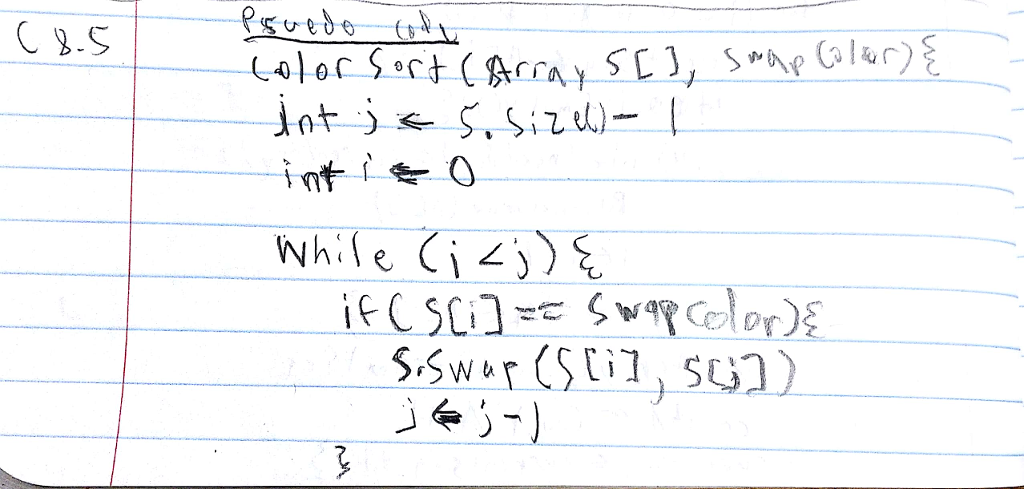 C 8.5
Psuedo code
ColorSort(Array S[], SwapColor){
int j ← S.Size()- 1
int i ← 0
While (i<j) {
if( S[i] == Swapcolor){
S.Swap (S[i], S[j])
j ← j-1
}